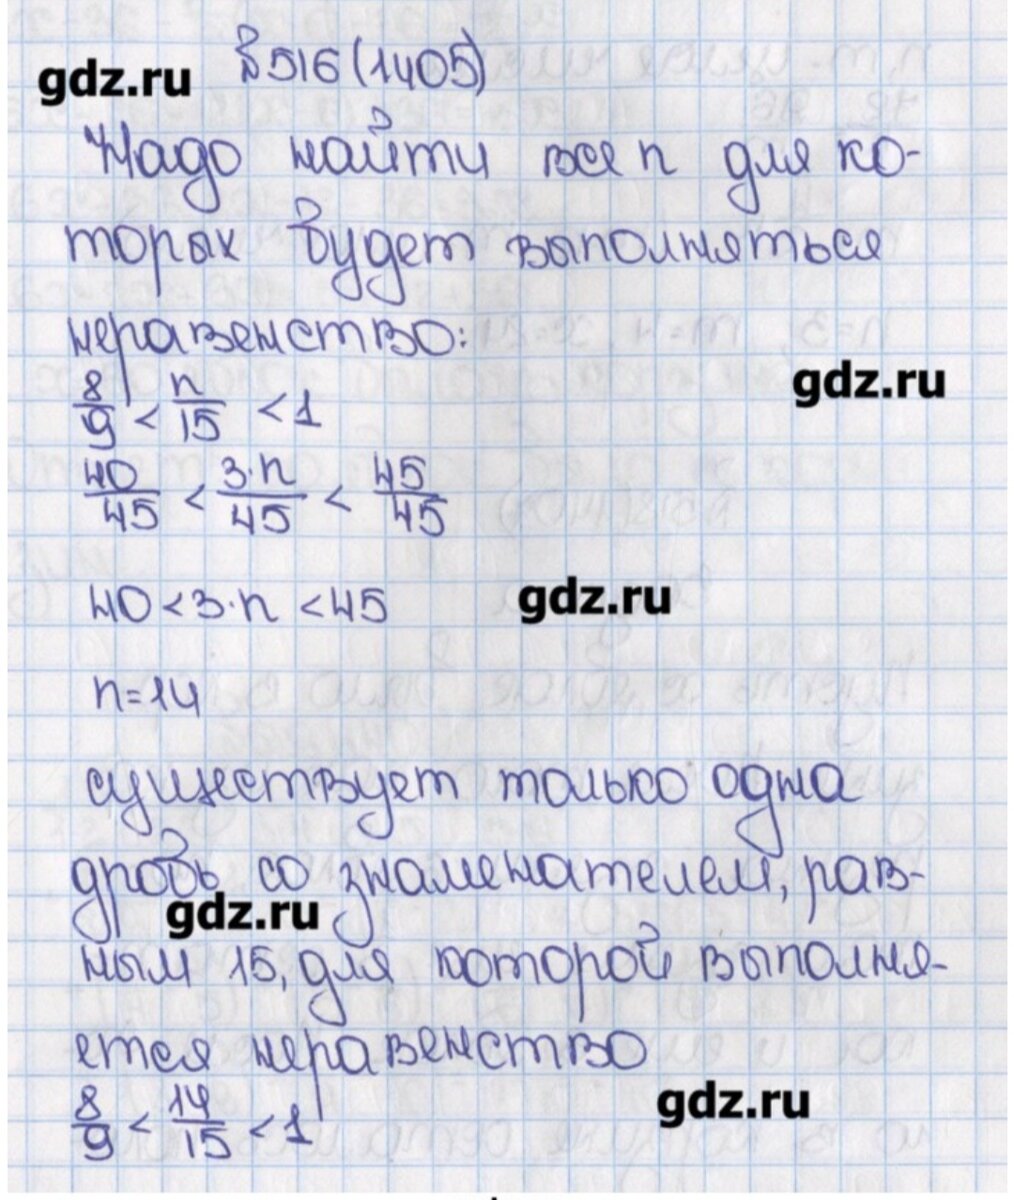 №516 (1405)
gdz.ru
Надо найти все n для ко-
торых будет выполняться
неравенство:
8/9 < n/15 < 1
gdz.ru
40/45 < 3·n/45 < 45/45
40 < 3·n < 45
gdz.ru
n=14
существует только одна
дробь со знаменателем, рав-
gdz.ru
ным 15, для которой выполня-
ется неравенство
8/9 < 14/15 < 1
gdz.ru